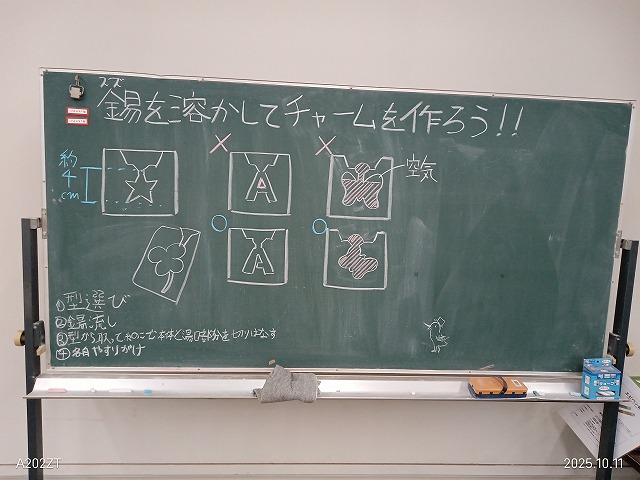 スズ
錫を溶かしてチャームを作ろう!!
約
4
cm
×
×
空気
A
○
○
A
①型選び
②錫流し
③型から取ってのこで本体と湯口部分を切りはなす
④各自やすりがけ
A202ZT
2025.10.11